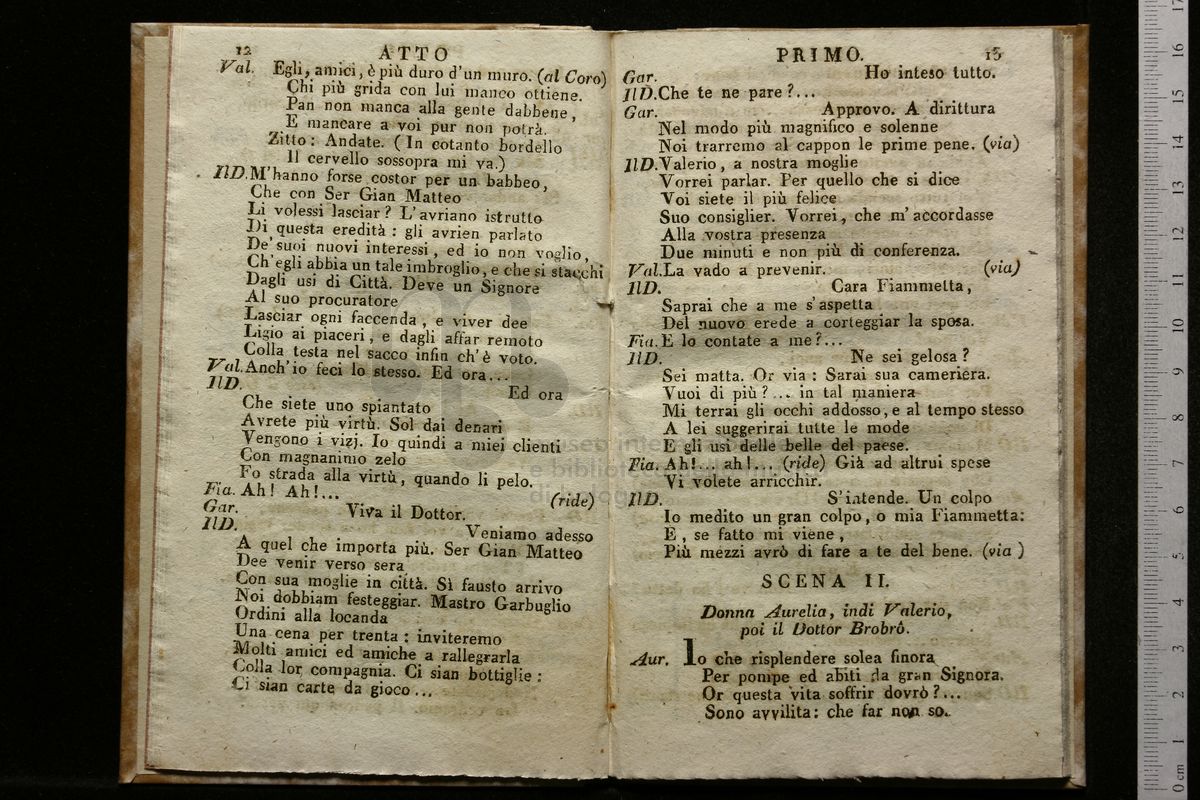 12 ATTO
Val. Egli, amici, è più duro d'un muro. (al Coro)
Chi più grida con lui manco ottiene.
Pan non manca alla gente dabbene,
E mancare a voi pur non potrà.
Zitto: Andate. (In cotanto bordello
Il cervello sossopra mi va.)
IlD. M'hanno forse costor per un babbeo,
Che con Ser Gian Matteo
Li volessi lasciar? L'avriano istrutto
Di questa eredità: gli avrien parlato
De' suoi nuovi interessi, ed io non voglio,
Ch'egli abbia un tale imbroglio, e che si stacchi
Dagli usi di Città. Deve un Signore
Al suo procuratore
Lasciar ogni faccenda, e viver dee
Ligio ai piaceri, e dagli affar remoto
Colla testa nel sacco infin ch'è voto.
Val. Anch'io feci lo stesso. Ed ora...
IlD. Ed ora
Che siete uno spiantato
Avrete più virtù. Sol dai denari
Vengono i vizj. Io quindi a miei clienti
Con magnanimo zelo
Fo strada alla virtù, quando li pelo.
Fia. Ah! Ah!... (ride)
Gar. Viva il Dottor.
IlD. Veniamo adesso
A quel che importa più. Ser Gian Matteo
Dee venir verso sera
Con sua moglie in città. Sì fausto arrivo
Noi dobbiam festeggiar. Mastro Garbuglio
Ordini alla locanda
Una cena per trenta: inviteremo
Molti amici ed amiche a rallegrarla
Colla lor compagnia. Ci sian bottiglie:
Ci sian carte da gioco...
PRIMO. 13
Gar. Ho inteso tutto.
IlD. Che te ne pare?...
Gar. Approvo. A dirittura
Nel modo più magnifico e solenne
Noi trarremo al cappon le prime pene. (via)
IlD. Valerio, a nostra moglie
Vorrei parlar. Per quello che si dice
Voi siete il più felice
Suo consiglier. Vorrei, che m'accordasse
Alla vostra presenza
Due minuti e non più di conferenza.
Val. La vado a prevenir. (via)
IlD. Cara Fiammetta,
Saprai che a me s'aspetta
Del nuovo erede a corteggiar la sposa.
Fia. E lo contate a me?...
IlD. Ne sei gelosa?
Sei matta. Or via: Sarai sua cameriera.
Vuoi di più?... in tal maniera
Mi terrai gli occhi addosso, e al tempo stesso
A lei suggerirai tutte le mode
E gli usi delle belle del paese.
Fia. Ah!... ah!... (ride) Già ad altrui spese
Vi volete arricchir.
IlD. S'intende. Un colpo
Io medito un gran colpo, o mia Fiammetta:
E, se fatto mi viene,
Più mezzi avrò di fare a te del bene. (via)
SCENA II.
Donna Aurelia, indi Valerio,
poi il Dottor Brobrò.
Aur. Io che risplendere solea finora
Per pompe ed abiti da gran Signora.
Or questa vita soffrir dovrò?...
Sono avvilita: che far non so.